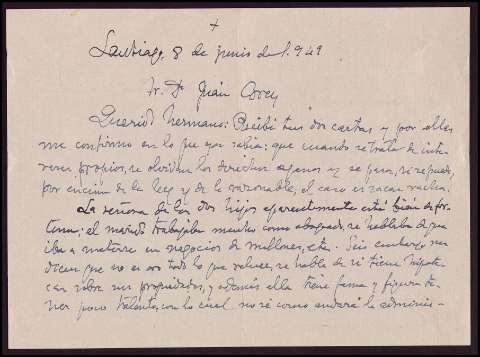 +
Santiago, 8 de junio de 1.949
Sr. Dr. Juan
Querido hermano: Recibí tus dos cartas y por ellas
me confirmo en lo que ya sabía: que cuando se trata de inte-
reses propios, se olvidan los derechos ajenos y se pasa, si se puede,
por encima de la ley y de lo razonable, el caso es sacar
La señora de los dos hijos aparentemente está bien de for-
tuna; el marido trabajaba mucho como abogado, se hablaba de que
iba a meterse en negocios de millones, etc. Sin embargo me
dicen que no es oro todo lo que reluce, se habla de si tiene hipote-
cas sobre sus propiedades, y además ella tiene fama y figura te-
ner poco talento, con lo cual no sé como andará la adminis-